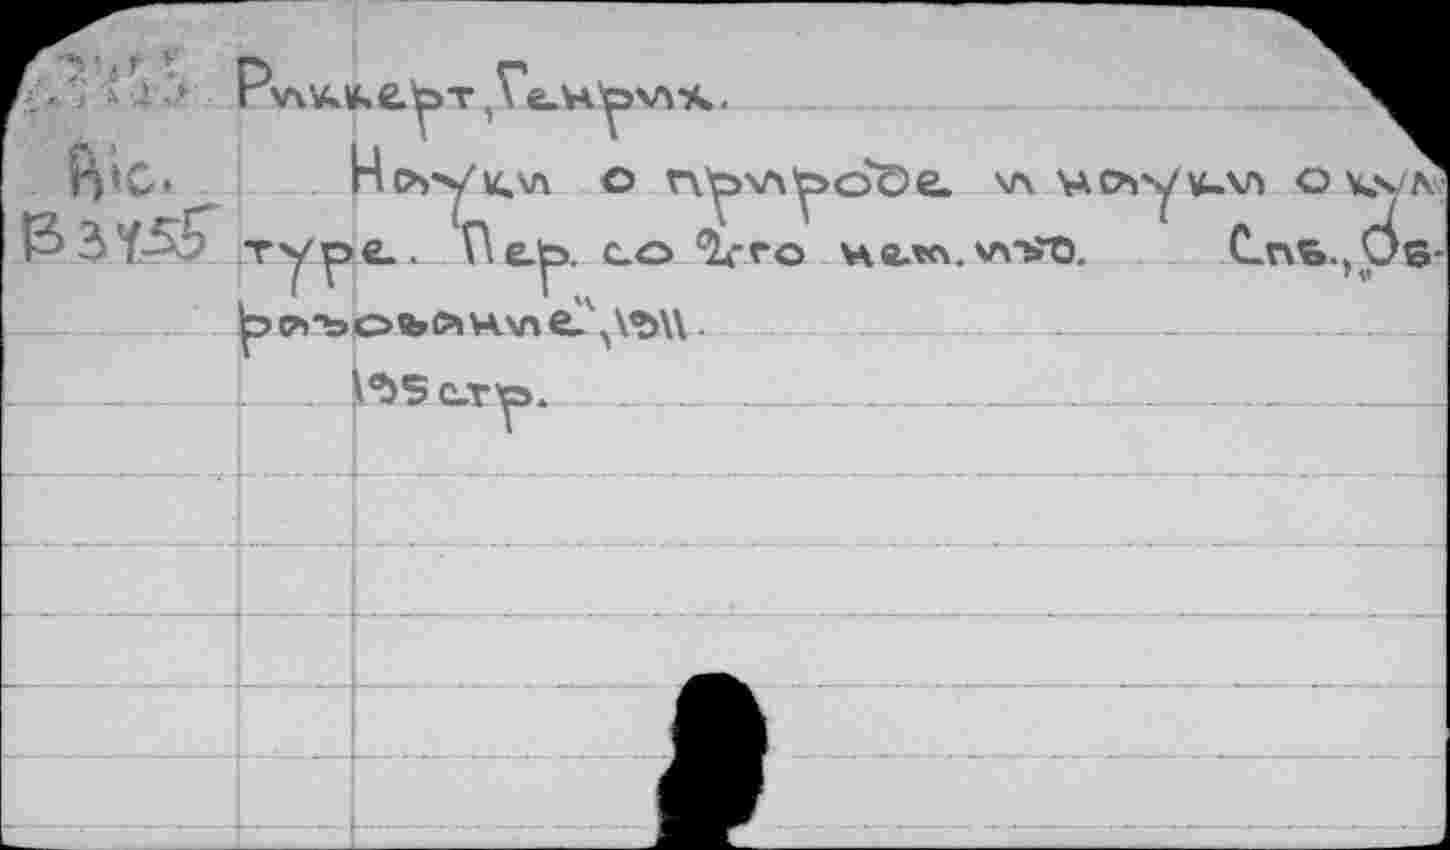 Риккерт, Генрих.
В/с.
Науки о природе и науки о куль
В3455
туре.. Пер. со 2го нем. изд. Спб., "Об-
разование", 1911.
195 стр.